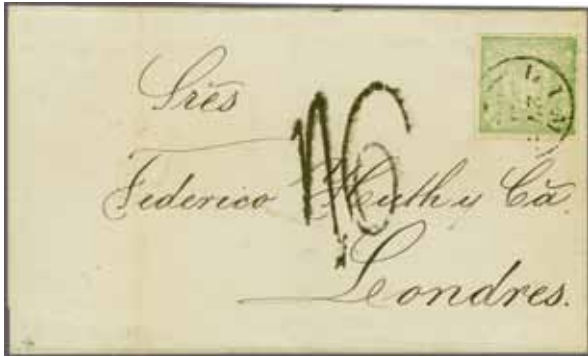 LIM
Srēs
1/6
Federico Huth y Ca
Londres.